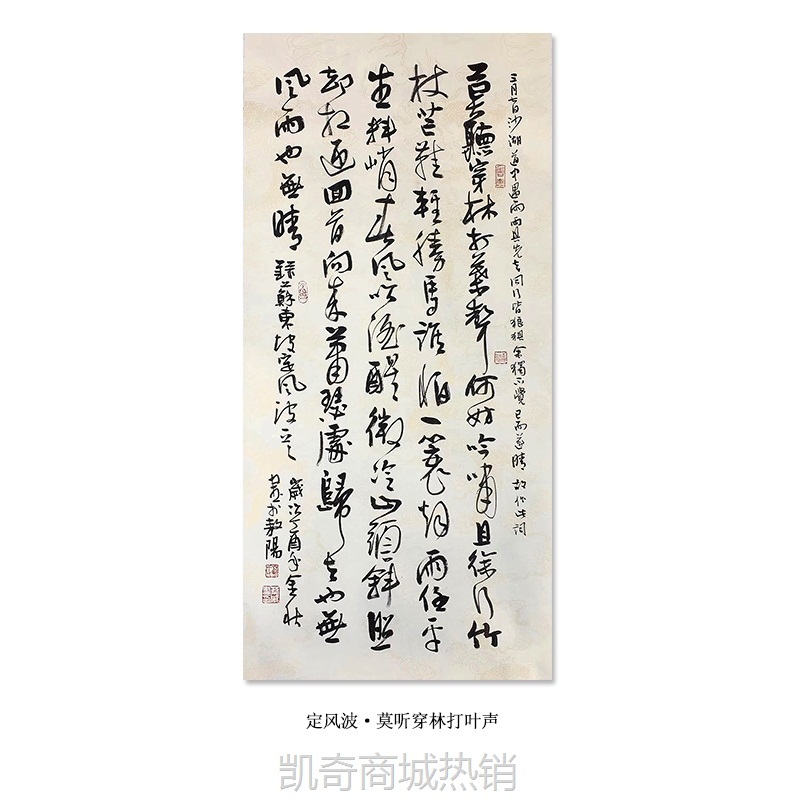 三月七日沙湖道中遇雨雨具先去同行皆狼狽余獨不覺已而遂晴故作此詞
莫聽穿林打葉聲何妨吟嘯且徐行竹
杖芒鞋輕勝馬誰怕一蓑烟雨任平
生料峭春風吹酒醒微冷山頭斜照
却相迎回首向來蕭瑟處歸去也無
風雨也無晴 錄蘇東坡定風波
歲次丁酉年金秋
定风波·莫听穿林打叶声
凯奇商城热销